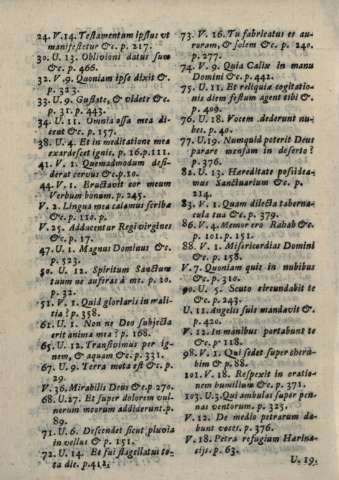 24. V. 14. Testamentum ipsius ut
manifestetur &c. p. 217.
30. U. 13. Oblivioni datus sum
&c. p. 466.
32. V. 9. Quoniam ipse dixit &c.
p. 323.
33. U. 9. Gustate, & videte &c.
p. 31. p. 443.
34. U. 11. Omnia ossa mea di-
cent &c. p. 157.
38. U. 4. Et in meditatione mea
exardescet ignis. p. 16. p. 111.
41. V. 1. Quemadmodum desi-
derat cervus &c. p. 10.
44. V. 1. Eructavit cor meum
Verbum bonum. p. 245.
V. 2. Lingua mea calamus scribæ
&c. p. 120. p.
V. 25. Adducentur Regi virgines
&c. p. 17.
47. U. 1. Magnus Dominus &c.
p. 523.
50. U. 12. Spiritum Sanctum
tuum ne auferas à me. p. 20.
p. 32.
51. V. 1. Quid gloriaris in mali-
tia? p. 358.
61. U. 1. Non ne Deo subjecta
erit anima mea? p. 168.
65. U. 12. Transivimus per ig-
nem, & aquam &c. p. 331.
67. U. 9. Terra mota est &c. p.
29.
V. 36. Mirabilis Deus &c. p. 270.
68. U. 27. Et super dolorem vul-
nerum meorum addiderunt. p.
89.
71. U. 6. Descendet sicut pluvia
in vellus & p. 151.
72. U. 14. Et fui flagellatus to-
ta die. p. 411.
73. V. 16. Tu fabricatus es au-
roram, & solem &c. p. 240.
p. 277.
74. V. 9. Quia Calix in manu
Domini &c. p. 442.
75. U. 11. Et reliquiæ cogitatio-
nis diem festum agent tibi &c.
p. 409.
76. U. 18. Vocem dederunt nu-
bes. p. 40.
77. U. 19. Numquid poterit Deus
parare mensam in deserto?
p. 376.
82. U. 13. Hereditate possidea-
mus Sanctuarium &c. p.
214.
83. V. 1. Quam dilecta taberna-
cula tua &c. p. 379.
86. V. 4. Memor ero Rahab &c.
p. 101. p. 151.
88. V. 1. Misericordias Domini
&c. p. 158.
V. 7. Quoniam quis in nubibus
&c. p. 310.
90. U. 5. Scuto circundabit te
&c. p. 243.
U. 11. Angelis suis mandavit &c.
p. 420.
V. 12. In manibus portabunt te
&c. p. 118.
98. V. 1. Qui sedet super cherú-
bim & p. 88.
101. V. 18. Respexit in oratio-
nem humilium &c. p. 371.
103. U. 3. Qui ambulas super pen-
nas ventorum. p. 325.
V. 12. De medio petrarum da-
bunt voces. p. 376.
V. 18. Petra refugium Herina-
cijs. p. 63.
U. 19.